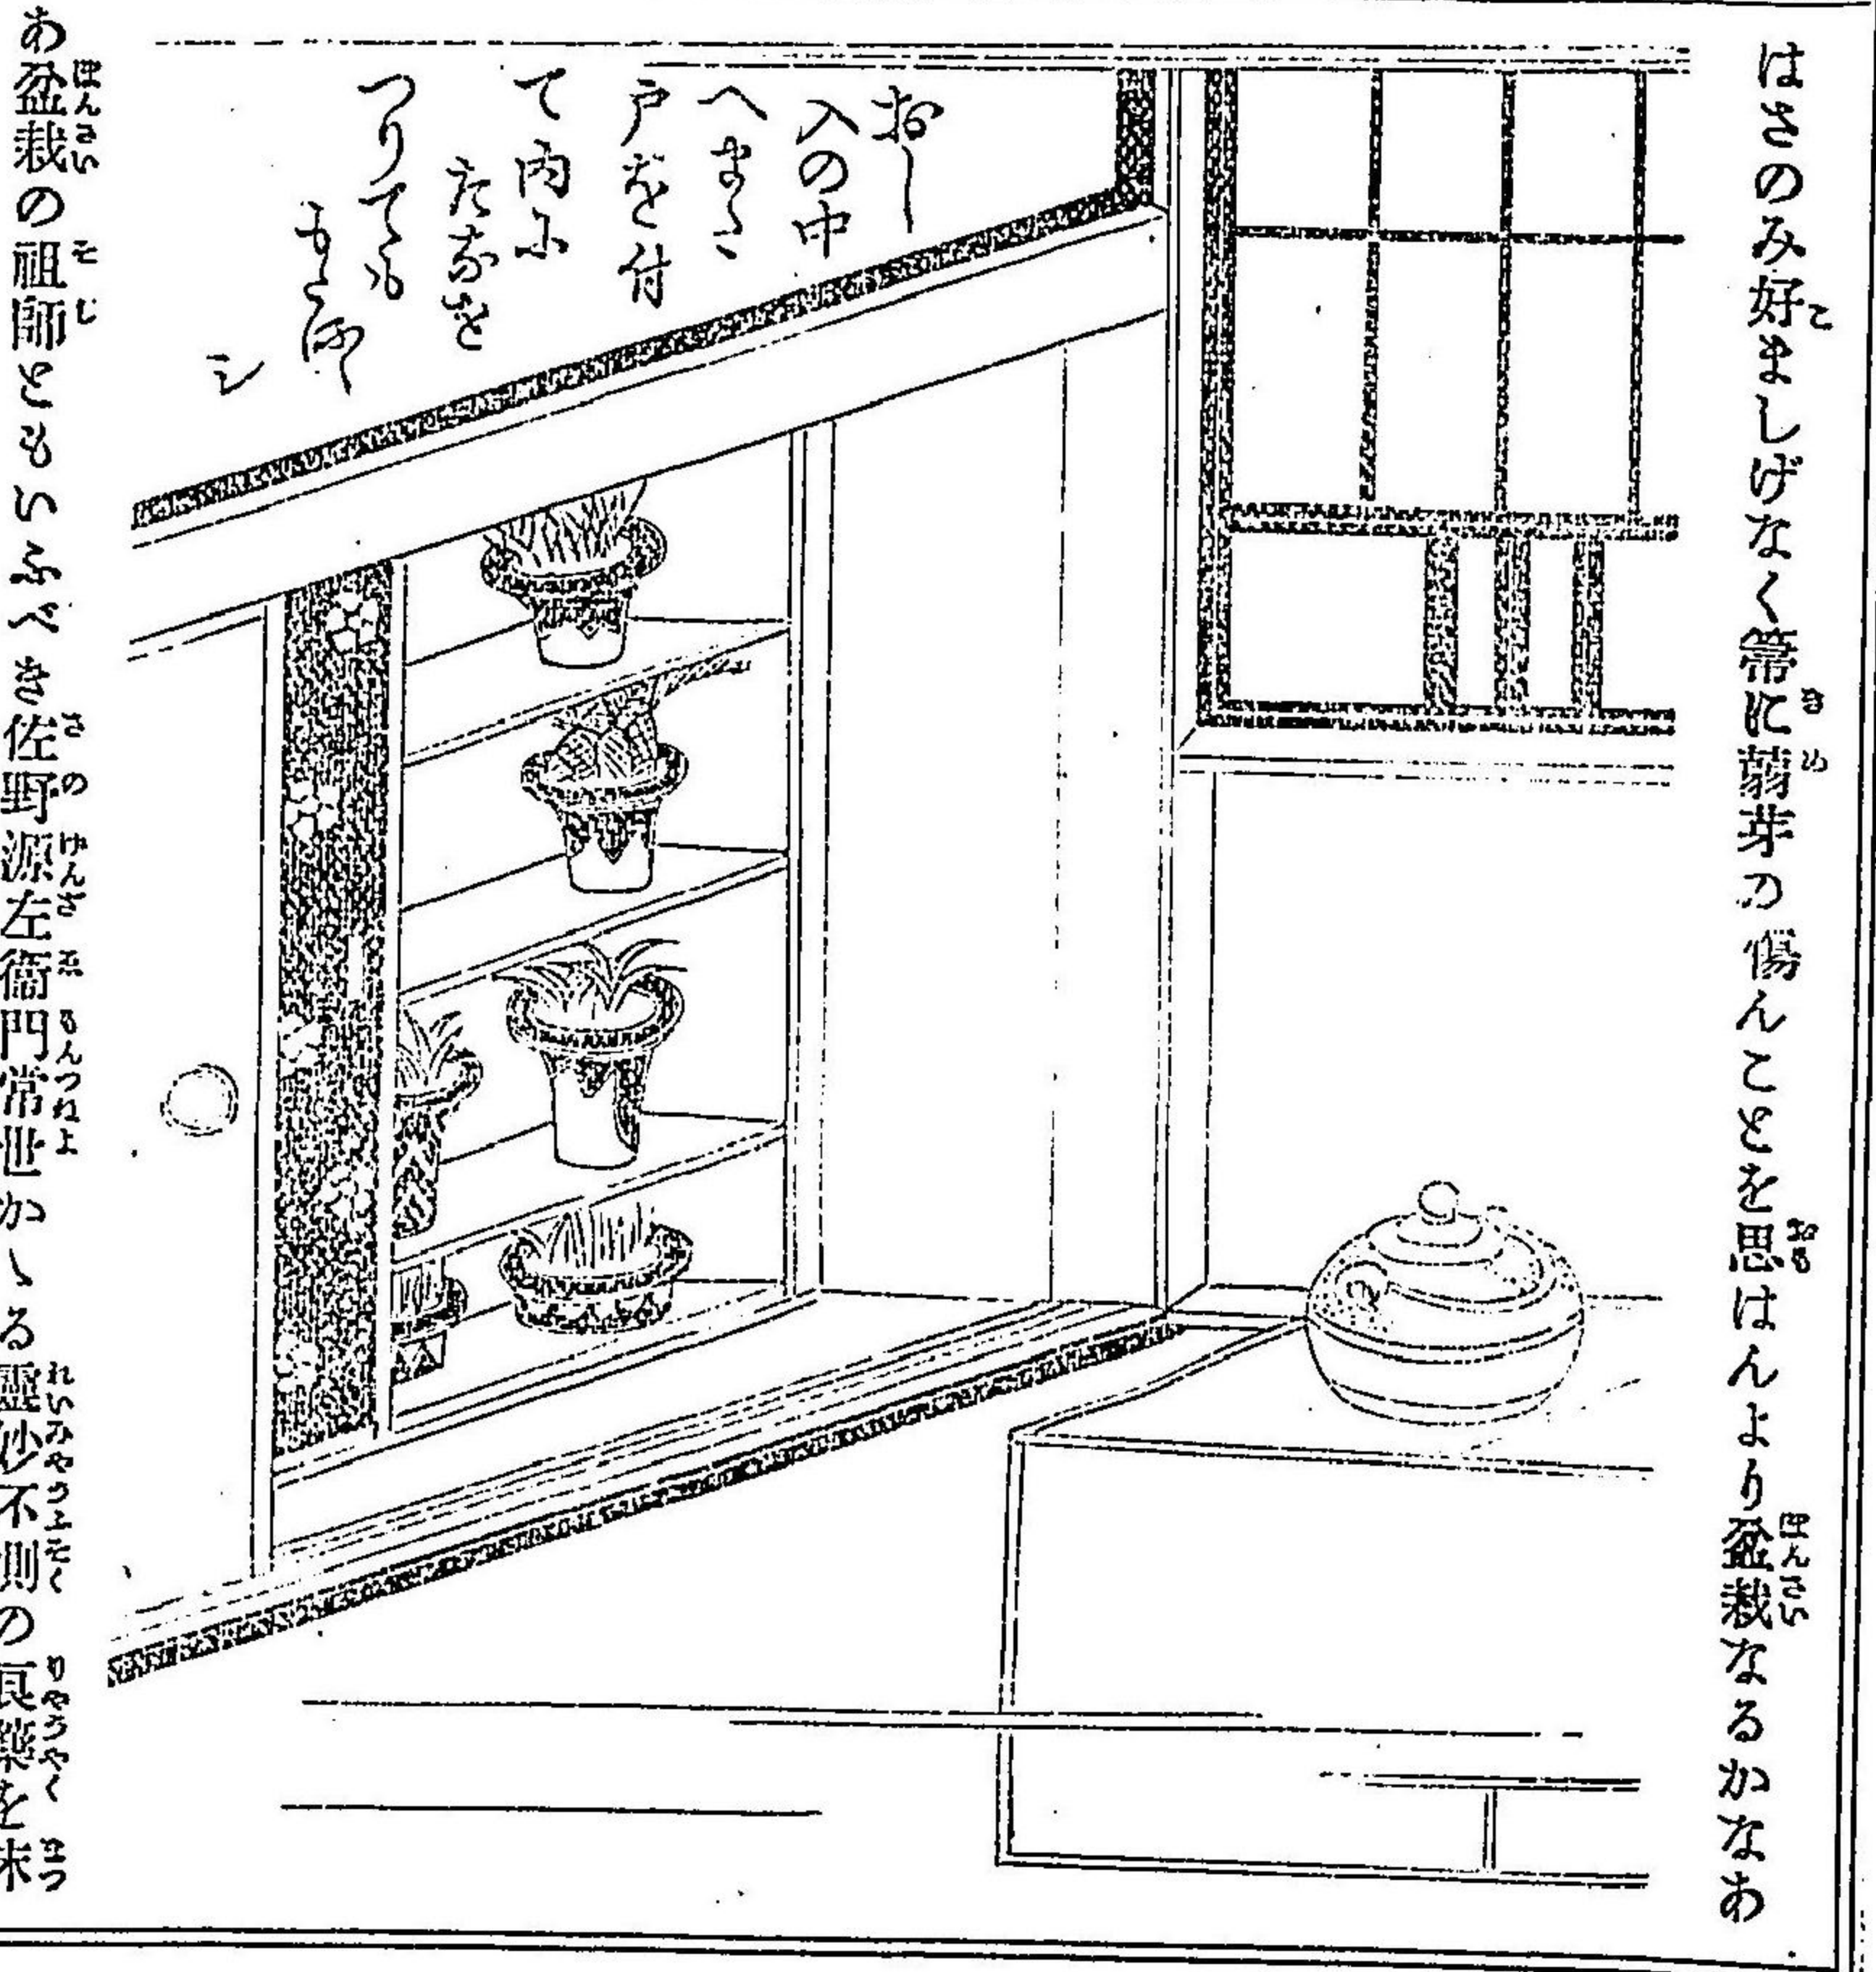 はさのみ好ましげなく箒に芽の傷んことを思はんより盆栽なるかなあ
おし
入の中
戸を付
て内に
たなを
つりても
シ
あ盆栽の祖師ともいふべき佐野源左衞門常世かゝる靈妙不測の良藥を末